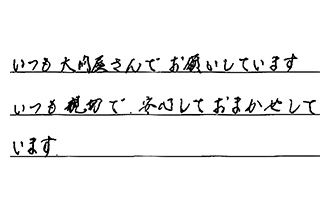 いつも大門屋さんでお願いしています
いつも親切で、安心しておまかせして
います。